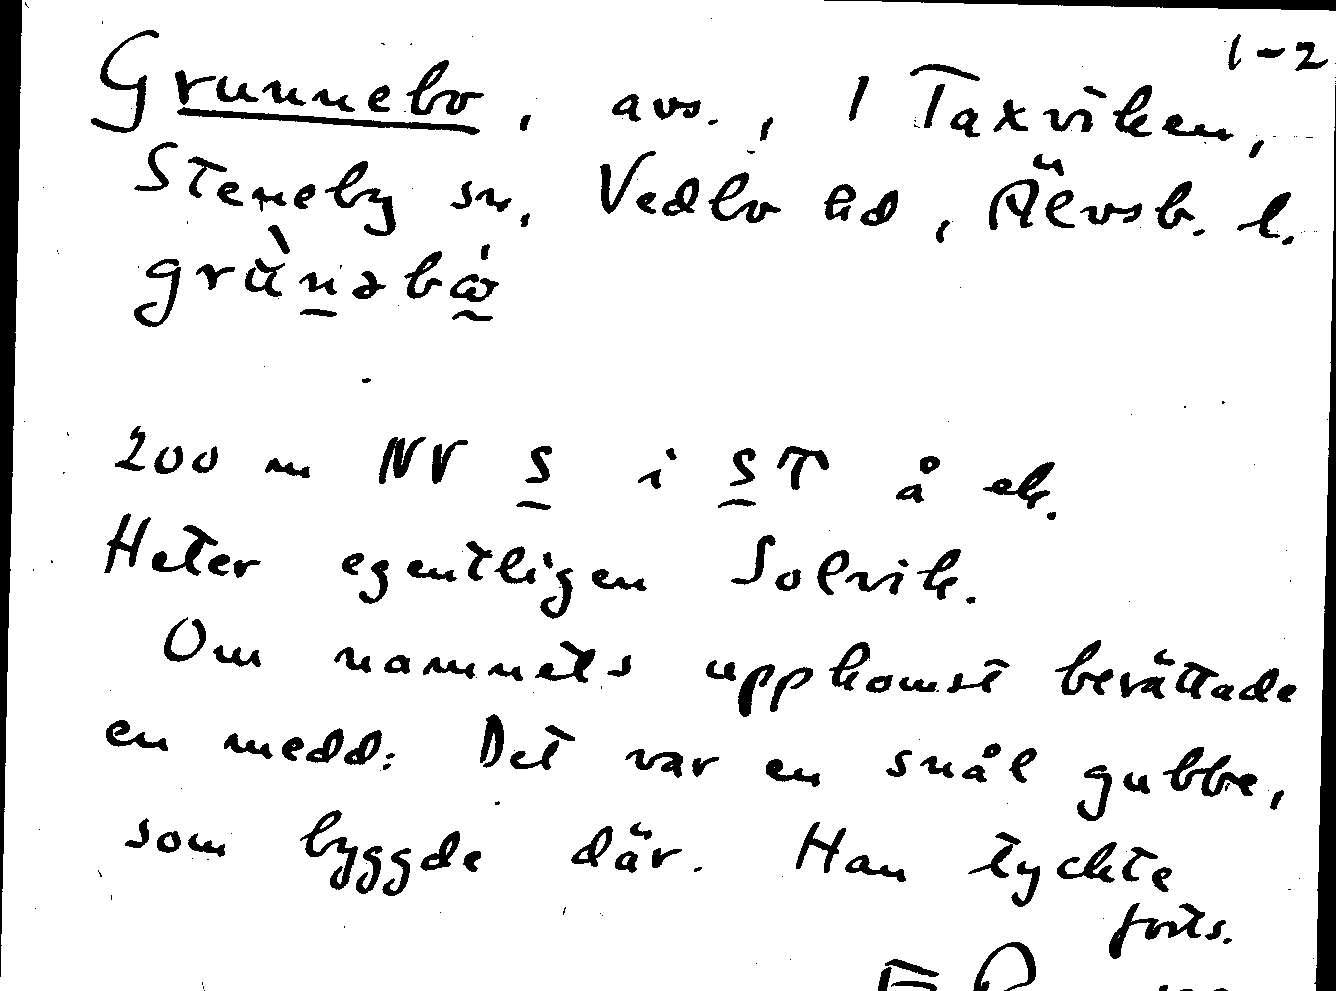 1-2
Grunnebo, avs., 1 Taxviken,
Steneby sn, Vedbo hd, Älvsb. l.
200 m NV S i ST å ek.
Heter egentligen Solvik.
Om namnets uppkomst berättade
en medd: Det var en snål gubbe,
som byggde där. Han tyckte
forts.